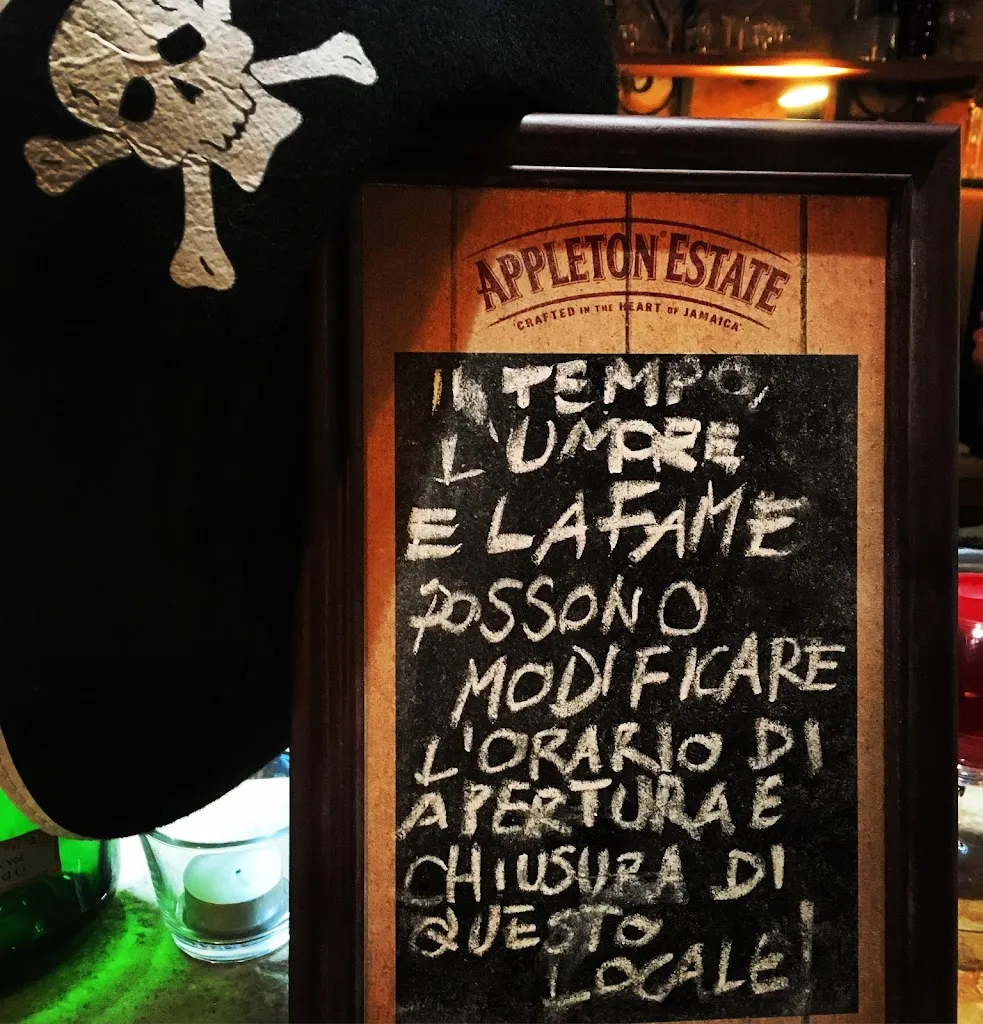 APPLETON ESTATE
"CRAFTED IN THE HEART OF JAMAICA"
IL TEMPO,
L'UMORE
E LA FAME
POSSONO
MODIFICARE
L'ORARIO DI
APERTURA E
CHIUSURA DI
QUESTO
LOCALE!